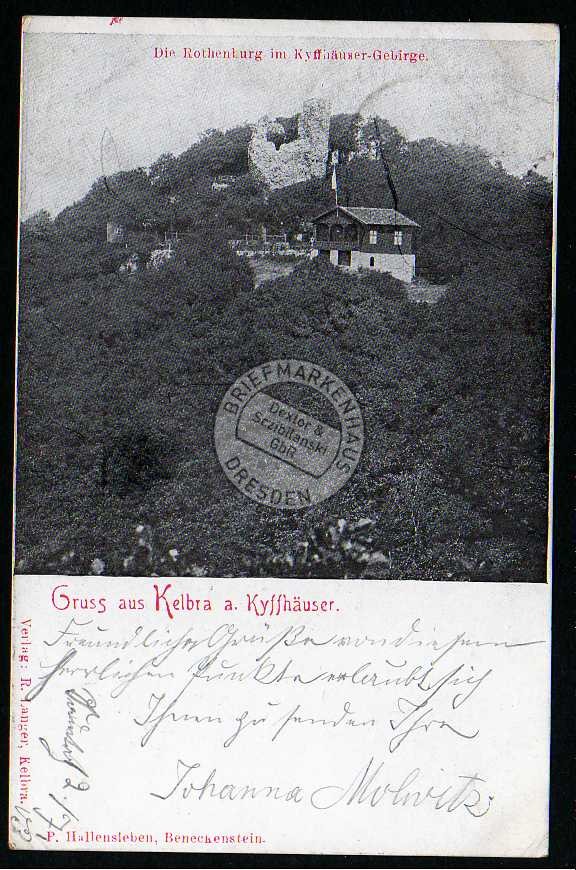 Die Rothenburg im Kyffhäuser-Gebirge.
BRIEFMARKENHAUS
Dextor &
Szibilanski
GbR
DRESDEN
Gruss aus Kelbra a. Kyffhäuser.
Freundliche Grüße von diesem
herrlichen Punkte erlaubt sich
Ihnen zu senden Ihre
Johanna Molwitz.
Verlag: R. Langer, Kelbra.
P. Hallensleben, Beneckenstein.